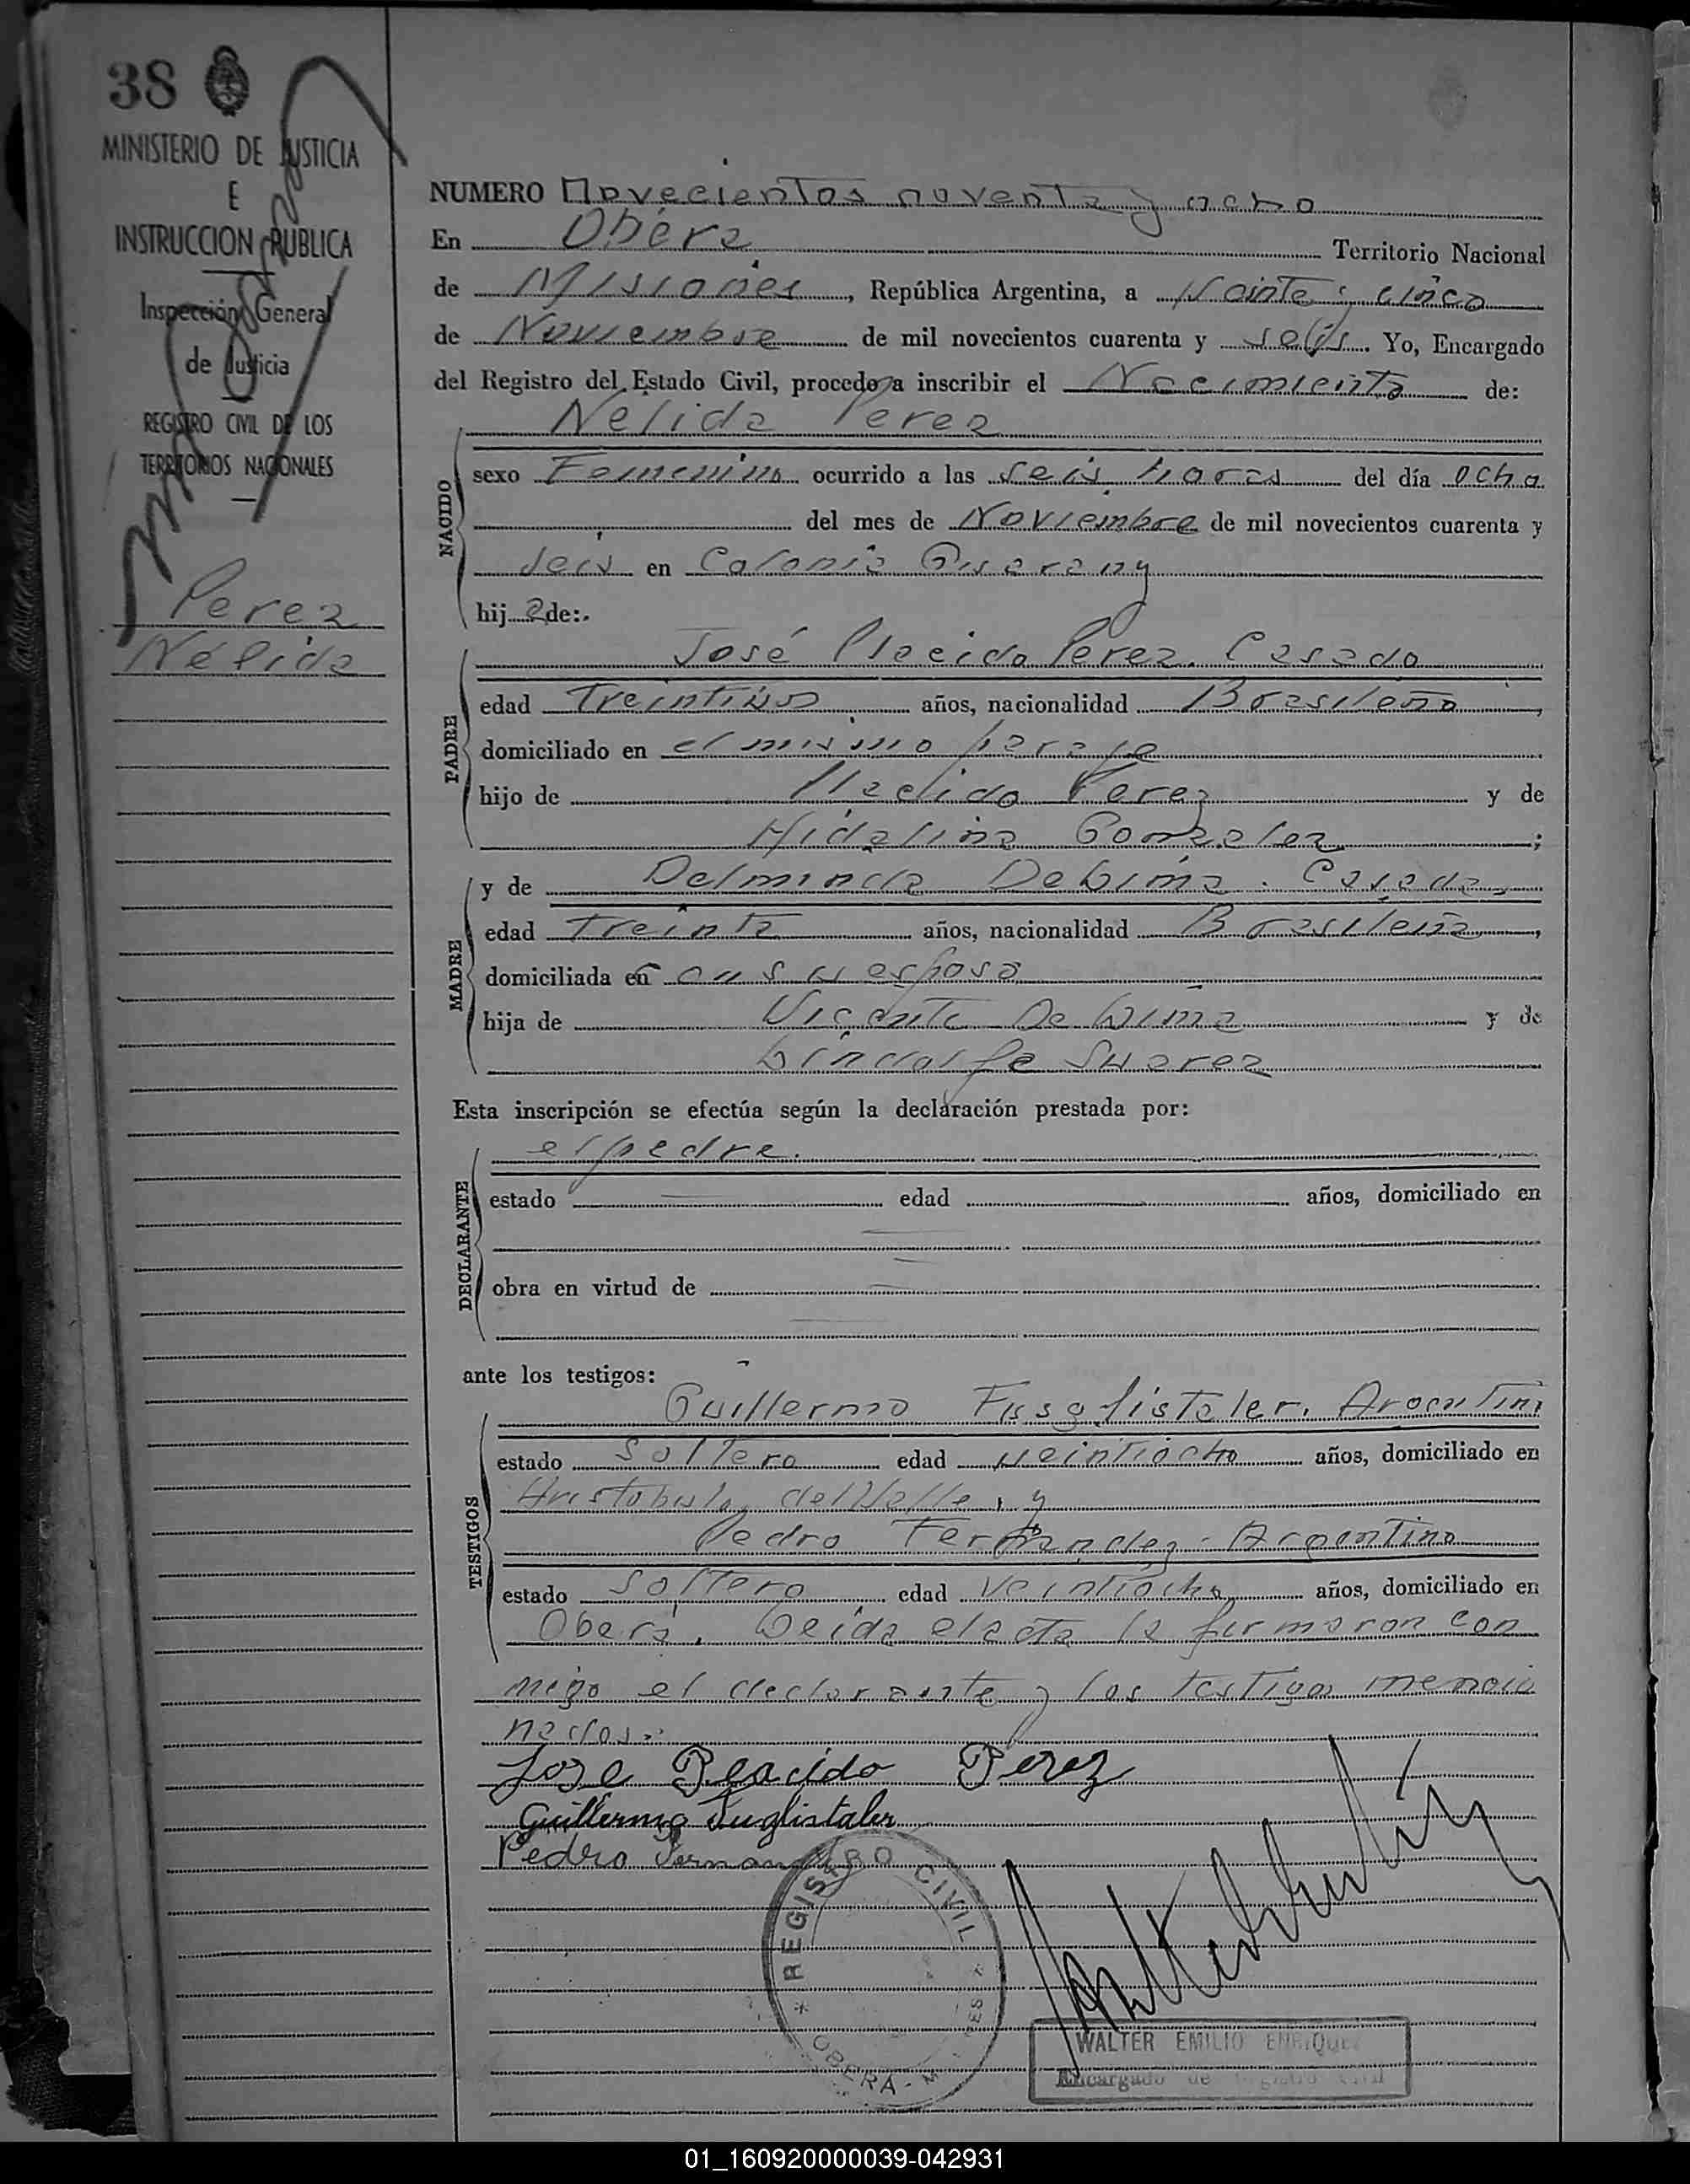 38
MINISTERIO DE JUSTICIA
E
INSTRUCCION PUBLICA
Inspección General
de Justicia
REGISTRO CIVIL DE LOS
TERRITORIOS NACIONALES
Perez
Nélida
NUMERO Novecientos noventa y ocho
En Oberá Territorio Nacional
de Misiones, República Argentina, a Veinte y cinco
de Noviembre de mil novecientos cuarenta y seis. Yo, Encargado
del Registro del Estado Civil, procedo a inscribir el Nacimiento de:
Nelida Perez
NACIDO
sexo Femenino ocurrido a las seis horas del día ocho
del mes de Noviembre de mil novecientos cuarenta y
seis en Colonia Guarany
hij a de:
PADRE
José Placido Perez. Casado
edad años, nacionalidad Brasileño,
domiciliado en el mismo paraje
hijo de Placido Perez y de
Hidalina Gonzalez;
MADRE
y de Delminda De Lima. Casada,
edad Treinta años, nacionalidad Brasileña,
domiciliada en con su esposo
hija de Vicente De Lima y de
Lindolfa Suarez
Esta inscripción se efectúa según la declaración prestada por:
DECLARANTE
el padre.
estado edad años, domiciliado en
obra en virtud de
ante los testigos:
TESTIGOS
Guillermo Argentino
estado Soltero edad veintiocho años, domiciliado en
Aristobulo del Valle, y
Pedro Fernandez. Argentino
estado Soltero edad veintiocho años, domiciliado en
Oberá. Leida el acta la firmaron con
migo el declarante y los testigos mencio
nados.
Jose Placido Perez
Guillermo Fuglistaler
Pedro Fernandez
REGISTRO CIVIL
OBERA - M
WALTER EMILIO ENRIQUE
Encargado de Registro Civil
01_160920000039-042931